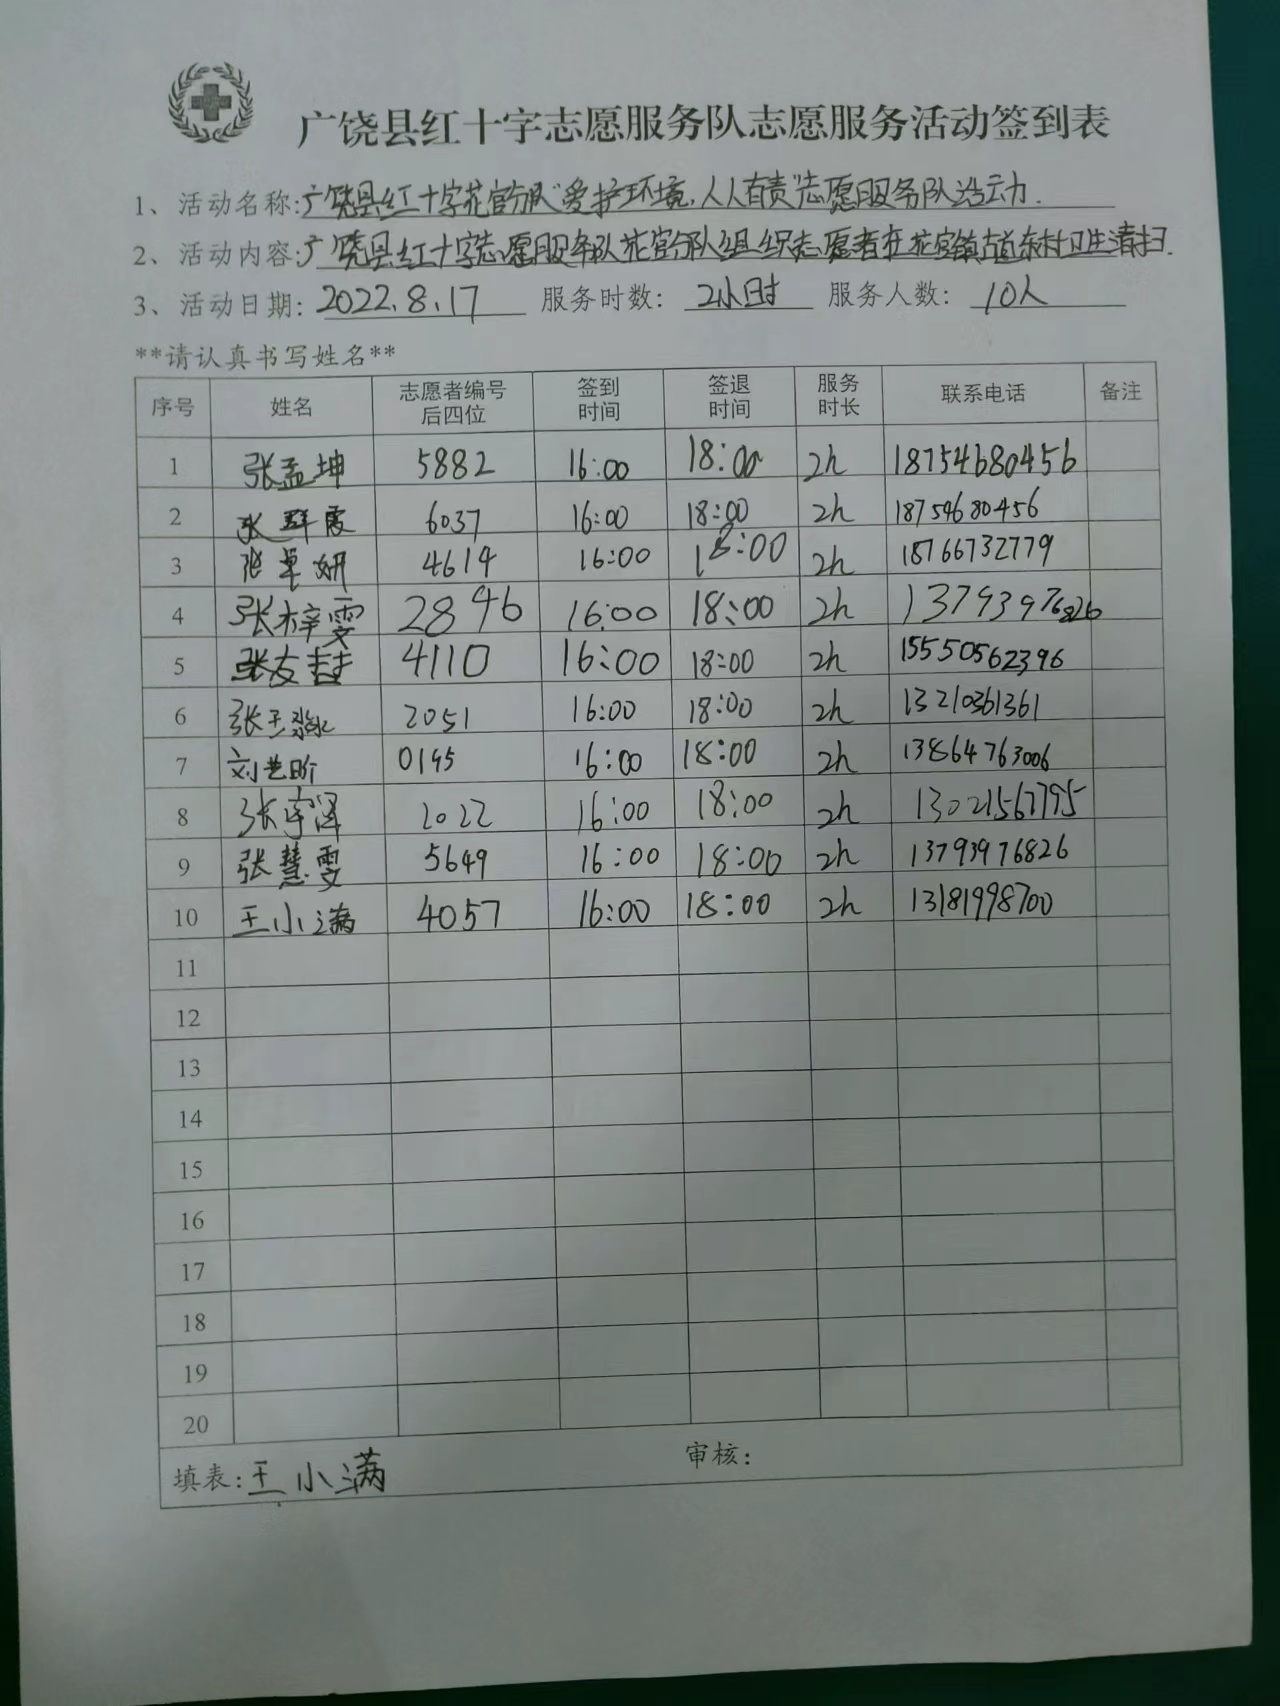 广饶县红十字志愿服务队志愿服务活动签到表
1、活动名称:广饶县红十字花官分队“爱护环境,人人有责”志愿服务队活动.
2、活动内容:广饶县红十字志愿服务队花官分队组织志愿者在花官镇古道东村卫生清扫.
3、活动日期: 2022.8.17 服务时数: 2小时 服务人数: 10人
**请认真书写姓名**
序号 姓名 志愿者编号后四位 签到时间 签退时间 服务时长 联系电话 备注
1 张孟坤 5882 16:00 18:00 2h 18754680456
2 张群霞 6037 16:00 18:00 2h 18754680456
3 张卓妍 4614 16:00 18:00 2h 18766732779
4 张梓雯 2896 16:00 18:00 2h 13793976826
5 张友喆 4110 16:00 18:00 2h 15550562396
6 张王淼 2051 16:00 18:00 2h 13210361361
7 刘艺 0195 16:00 18:00 2h 13864763006
8 张宇泽 2022 16:00 18:00 2h 13021567795
9 张慧雯 5649 16:00 18:00 2h 13793976826
10 王小满 4057 16:00 18:00 2h 13181998700
11
12
13
14
15
16
17
18
19
20
填表:王小满 审核: